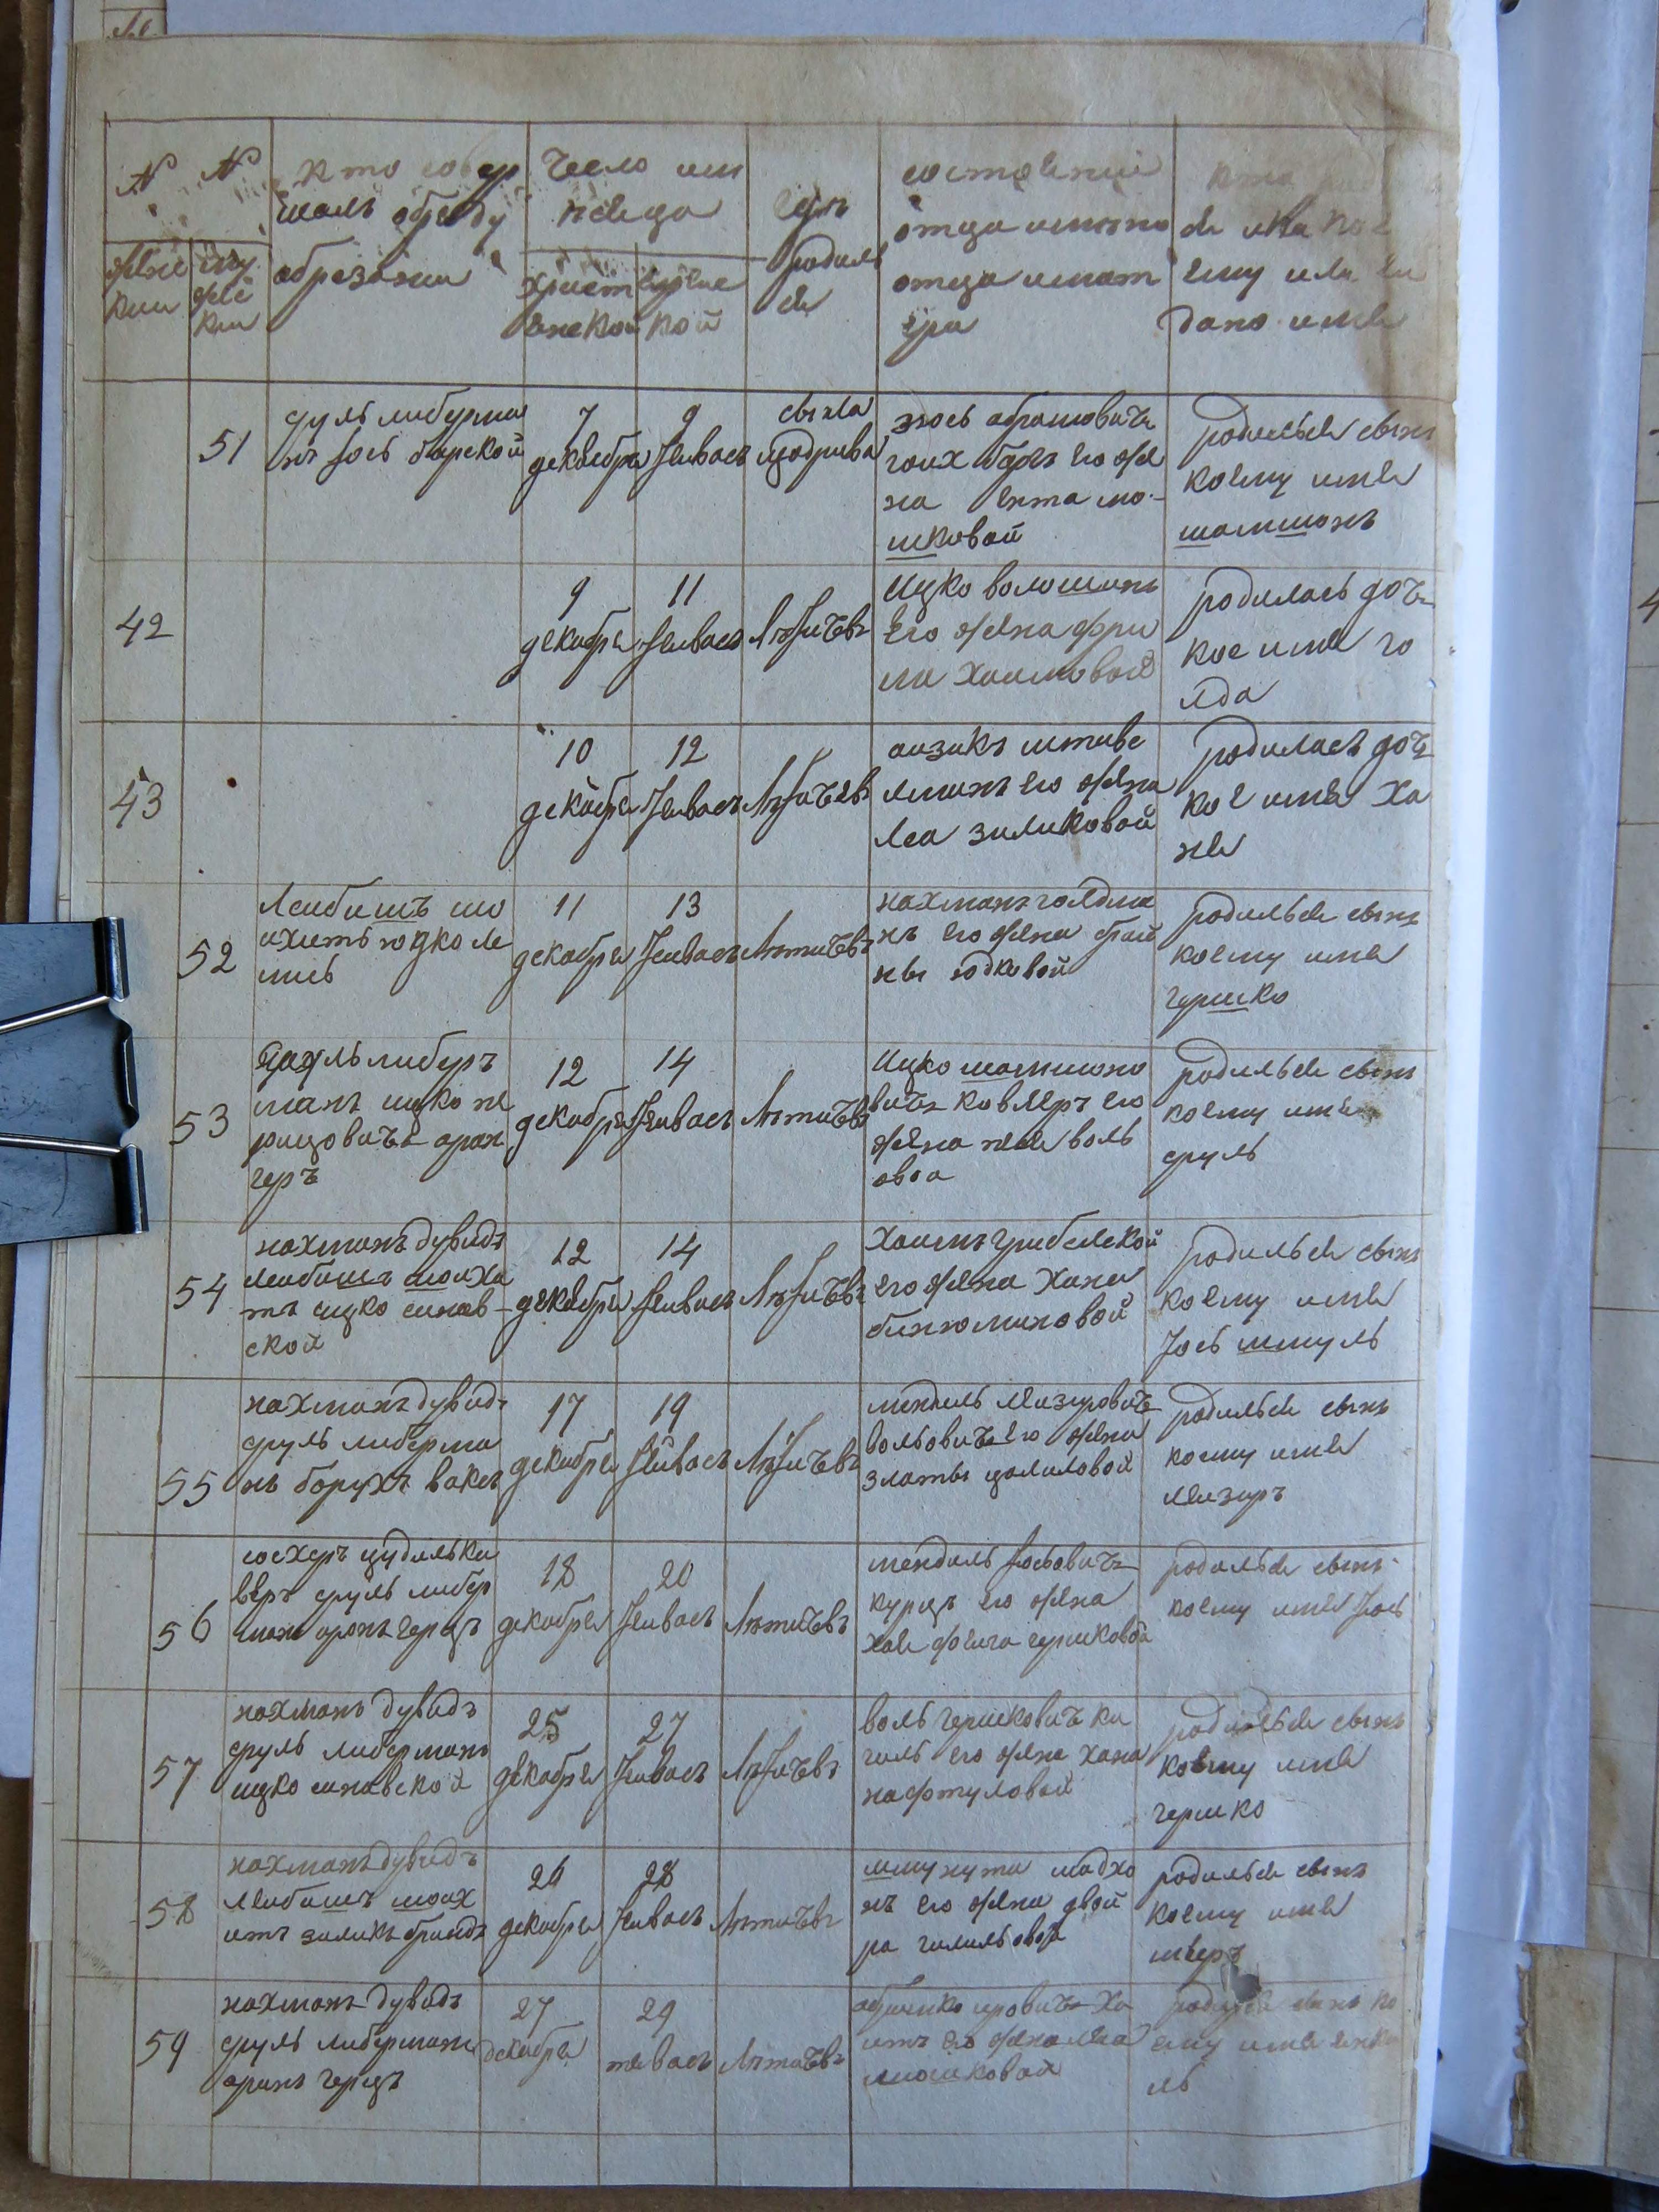 № №
женс
кии
му
жес
кии
кто совер
шалъ обряду
обрезании
Число ишу
месяца
христ
ианской
еврейс
кой
где
родил
ся
состояние
отца имяно
отца имат
ери
кто род
ся ика кое
ему или ей
дано имя
51
сруль либерма
нъ Іось барской
7
декабря
9
тейвасъ
свѣла
эось абрамовичъ
его же
на ента мо-
шковой
родилься сынъ
коему имя
шамшонъ
42
9
декабря
11
тейвасъ
Лятичевъ
Ицко волошинъ
его жена фри
ма хаимовой
родилась дочь
кое имя го
лда
43
10
декабря
12
тейвасъ
Лятичевъ
аизикъ штиве
лманъ его жена
Леа зиликовой
родилась дочь
кое имя ха
ня
52
Леибишъ шо
ихетъ юдко ле
мпсь
11
декабря
13
тейвасъ
Лятичевъ
нахманъ голдма
нъ его жена брай
ны юдковой
родилься сынъ
коему имя
гершко
53
сруль либеръ
манъ ицко ге
рицовичъ арон
геръ
12
декабря
14
тейвасъ
Лятичевъ
Ицко шамшоно
вичъ ковлеръ его
жена нея воль
овоа
родилься сынъ
коему имя
сруль
54
нахманъ дувидъ
леибишъ шоихе
тъ ицко синяв-
ской
12
декабря
14
тейвасъ
Лятичевъ
Хаимъ грибелской
его жена хана
биньоминовой
родилься сынъ
коему имя
Іось шмуль
55
нахманъ дувидъ
сруль либерма
нъ борухъ ваксъ
17
декабря
19
тейвасъ
Лятичевъ
мендель Леизеровичъ
вольовичъ его жена
златы цалиловой
родилься сынъ
коему имя
Леизеръ
56
сосхеръ цудилько
веръ сруль либер
манъ аронъ герицъ
18
декабря
20
тейвасъ
Лятичевъ
мендиль Іосьовичъ
курицъ его жена
хая феига гершковоа
родилься сынъ
коему имя Іось
57
нахманъ дувидъ
сруль либерманъ
ицко синявской
25
декабря
27
тейвасъ
Лятичевъ
воль гершковичъ ки
гиль его жена хана
нафтуловой
родилься сынъ
коему имя
гершко
58
нахманъ дувидъ
Леибишъ шоих
итъ зиликъ брандъ
26
декабря
28
тейвасъ
Лятичевъ
шмунута шадхо
нъ его жена двой
ра гилильовоа
родилься сынъ
коему имя
меръ
59
нахманъ дувидъ
сруль либерманъ
аронъ герицъ
27
декабря
29
тевасъ
Лятичевъ
абрамко уровичъ ха
итъ его жена леа
мошковой
родился сынъ ко
ему имя янке
ль